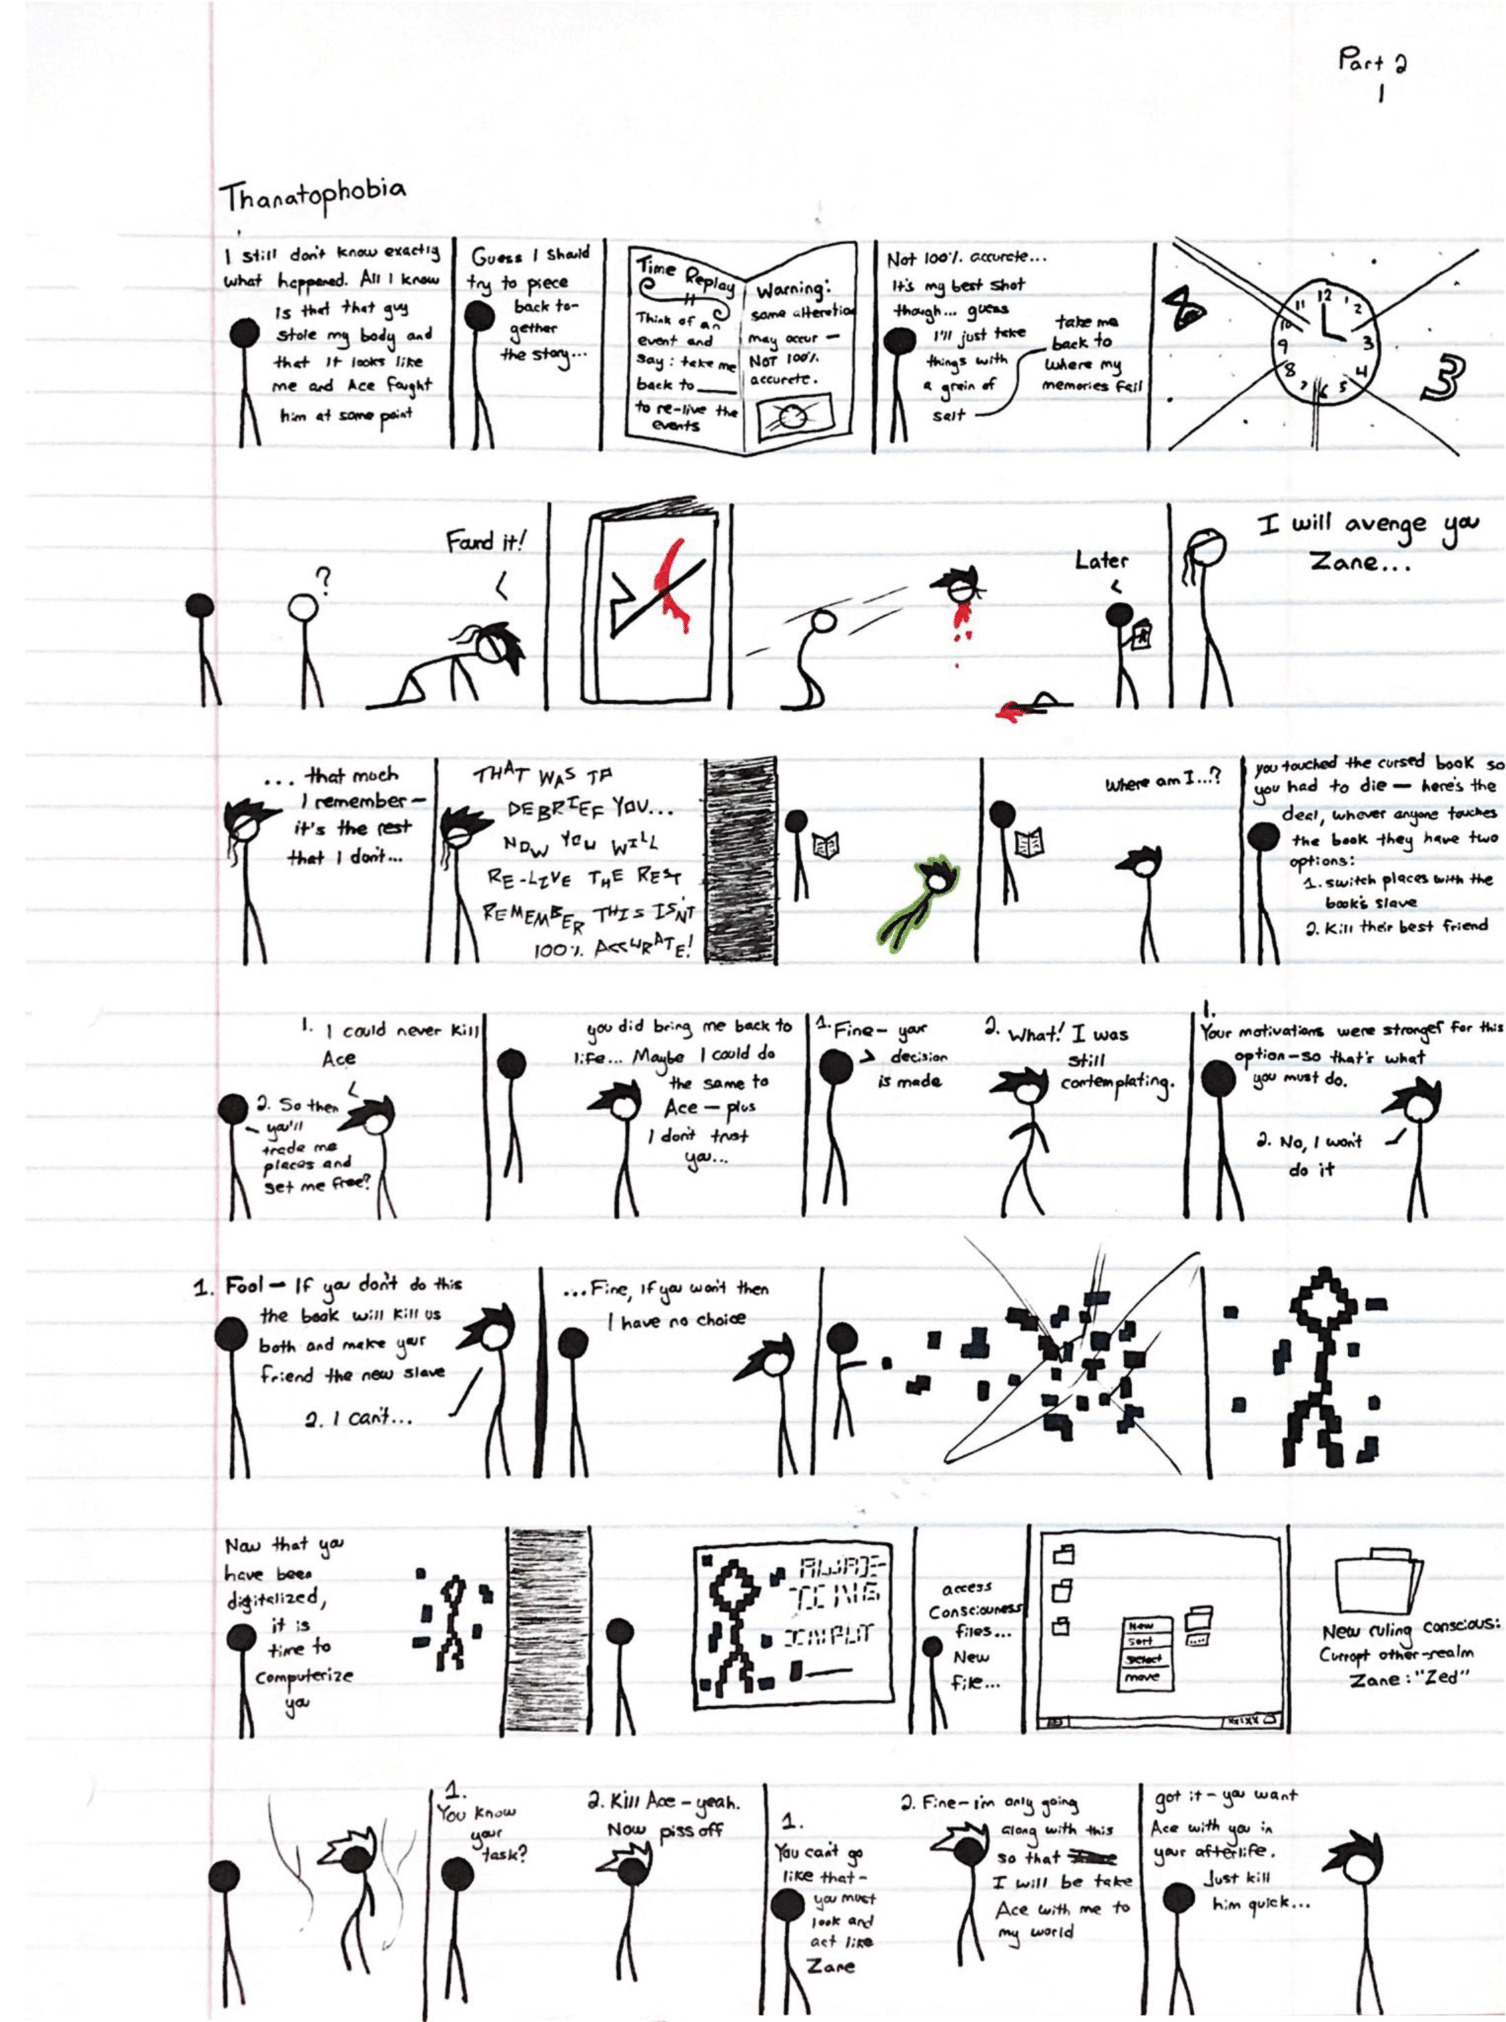 Part 2
1
Thanatophobia
I still don't know exactly
what happened. All I know
is that that guy
stole my body and
that it looks like
me and Ace fought
him at some point
Guess I should
try to piece
back to-
gether
the story...
Time Replay
Think of an
event and
say: take me
back to____
to re-live the
events
Warning:
some alteration
may occur —
NOT 100%
accurate.
Not 100% accurate...
It's my best shot
though... guess
I'll just take
things with
a grain of
salt
take me
back to
where my
memories fail
8
12
1
2
3
4
5
6
7
8
9
10
11
3
?
Found it!
Later
I will avenge you
Zane...
... that much
I remember —
it's the rest
that I don't...
THAT WAS TO
DEBRIEF YOU...
NOW YOU WILL
RE-LIVE THE REST
REMEMBER THIS ISN'T
100% ACCURATE!
Where am I...?
you touched the cursed book so
you had to die — here's the
deal, whever anyone touches
the book they have two
options:
1. switch places with the
book's slave
2. Kill their best friend
1. I could never kill
Ace
2. So then
you'll
trade me
places and
set me free?
you did bring me back to
life... Maybe I could do
the same to
Ace — plus
I don't trust
you...
1. Fine — your
decision
is made
2. What! I was
still
contemplating.
1.
Your motivations were stronger for this
option — so that's what
you must do.
2. No, I won't
do it
1. Fool — If you don't do this
the book will kill us
both and make your
friend the new slave
2. I can't...
...Fine, if you won't then
I have no choice
Now that you
have been
digitalized,
it is
time to
computerize
you
AWAI-
TING
INPUT
access
Consciouness
files...
New
file...
New
Sort
Select
move
New ruling conscious:
Curropt other-realm
Zane: "Zed"
1.
You know
your
task?
2. Kill Ace — yeah.
Now piss off
1.
You can't go
like that —
you must
look and
act like
Zane
2. Fine — I'm only going
along with this
so that
I will be take
Ace with me to
my world
got it — you want
Ace with you in
your afterlife.
Just kill
him quick...